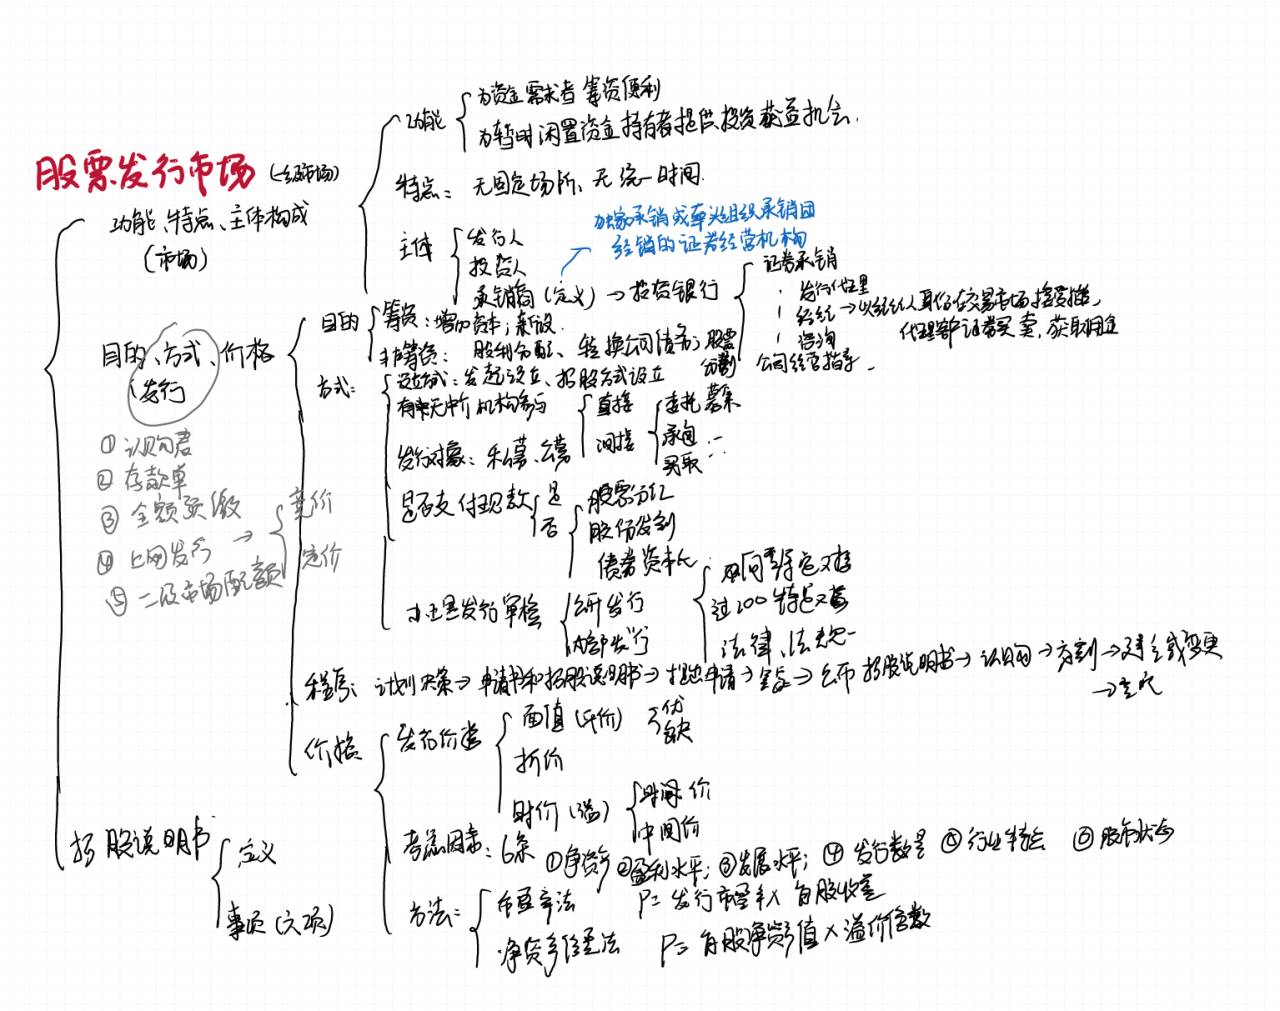 股票发行市场(一级市场)
功能、特点、主体构成
(市场)
功能
为资金需求者筹资便利
为暂时闲置资金持有者提供投资获益机会.
特点: 无固定场所、无统一时间.
主体
发行人
投资人
承销商(定义)→投资银行
独家承销或牵头组织承销团
经销的证券经营机构
证券承销
发行代理
经纪→以经纪人身份在交易市场接受委托,
代理客户证券买卖,获取佣金
咨询
公司经营指导
目的、方式、价格
发行
①认购者
②存款单
③全额预缴
④上网发行→
竞价
定价
⑤二级市场配额
目的
筹资:增加资本;新设.
非筹资: 股利分配、转换公司债券;股票
分割
方式:
设立方式:发起设立、招股方式设立
有无中介机构参与
直接
间接
委托募集
承包
买取
发行对象:私募、公募
是否支付现款
是
否
股票分红
股份分割
债券资本化
发行审核
公开发行
内部发行
向特定对象
过200特定对象
法律、法规
程序: 计划决策→申请书和招股说明书→提出申请→审定→公布招股说明书→认购→交割→建立或变更
→登记
价格
发行价格
面值(平价)
优
缺
折价
时价(溢)
时间价
中间价
考虑因素:6条 ①净资产②盈利水平;③发展水平;④发行数量⑤行业特点⑥股市状态
方法:
市盈率法 P=发行市盈率×每股收益
净资产倍率法 P=每股净资产值×溢价倍数
招股说明书
定义
事项(六项)